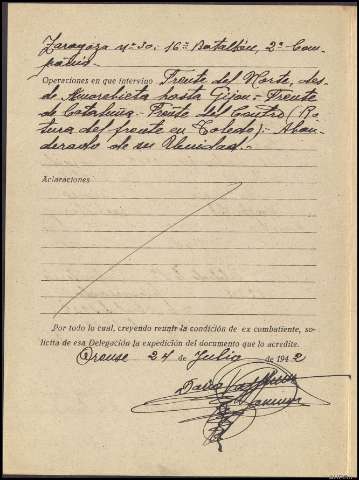 Zaragoza nº 30. 16º Batallón, 2ª Com-
pañia.
Operaciones en que intervino Frente del Norte, des-
de Amorebieta hasta Gijon.- Frente
de Cataluña.- Frente del Centro (Ro-
tura del frente en Toledo).- Aban-
derado de su Unidad.-
Aclaraciones
Por todo lo cual, creyendo reunir la condición de ex combatiente, so-
licita de esa Delegación la expedición del documento que lo acredite.
Orense 24 de Julio de 1942